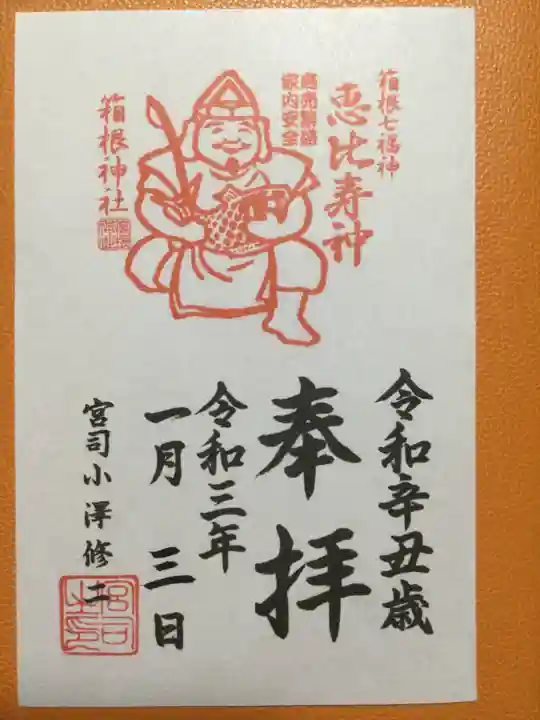 箱根七福神
恵比寿神
商売繁盛
家内安全
箱根神社
令和辛丑歳
奉拝
令和三年
一月三日
宮司小澤修二